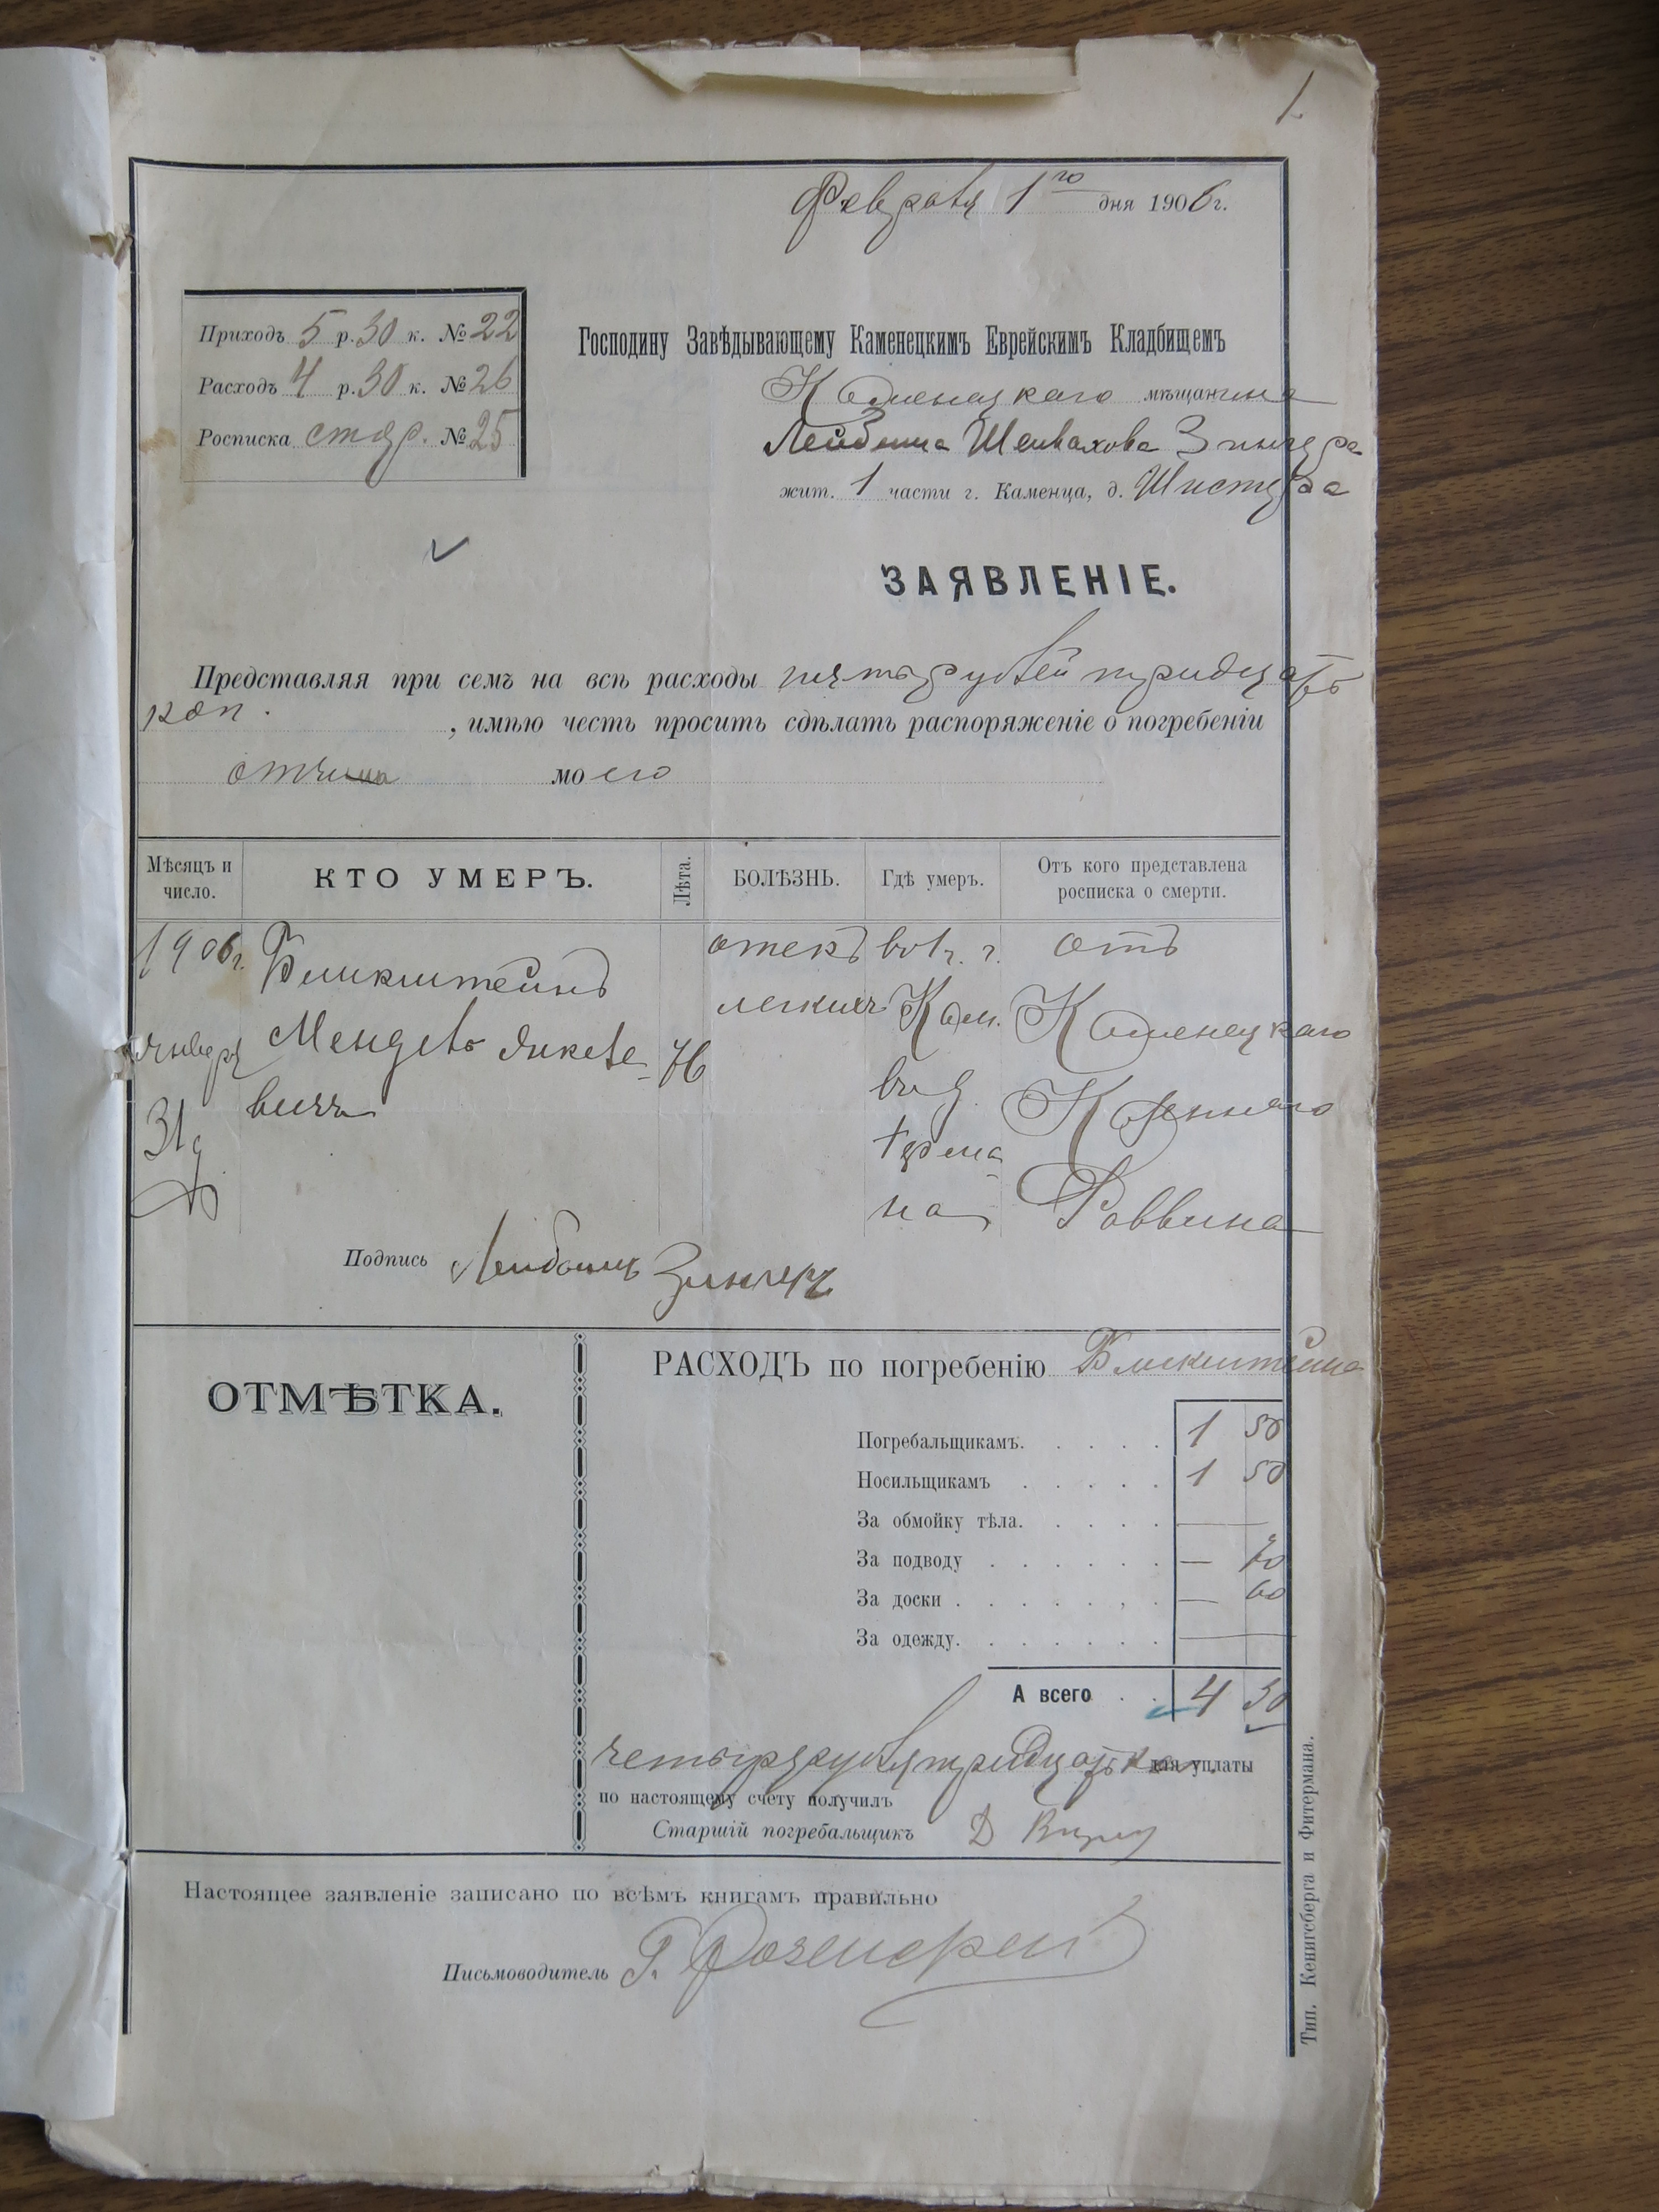 1
Февраля 1го дня 1906 г.
Приходъ 5 р. 30 к. № 22
Расходъ 4 р. 30 к. № 26
Росписка стар. № 25
Господину Завѣдывающему Каменецкимъ Еврейскимъ Кладбищемъ
Каменецкаго мѣщанина
Лейбиша Шевахова Зингера
жит. 1 части г. Каменца, д.
ЗАЯВЛЕНІЕ.
Представляя при семъ на всѣ расходы пять рублей тридцать
коп. , имѣю честь просить сдѣлать распоряженіе о погребеніи
отчима моего
Мѣсяцъ и число. КТО УМЕРЪ. Лѣта. БОЛѢЗНЬ. Гдѣ умеръ. Отъ кого представлена росписка о смерти.
1906 г. отекъ во 1 ч. г. отъ
легкихъ Кам. Каменецкаго
января Мендель Янкеле- 76
вичъ в д. Казеннаго
31 д.
на Раввина
Подпись Лейбишъ Зингеръ
ОТМѢТКА.
РАСХОДЪ по погребенію
Погребальщикамъ. 1 50
Носильщикамъ 1 50
За обмойку тѣла. —
За подводу — 70
За доски — 60
За одежду. —
А всего 4 30
четыре рубля тридцать коп. для уплаты
по настоящему счету получилъ
Старшій погребальщикъ Д
Настоящее заявленіе записано по всѣмъ книгамъ правильно
Письмоводитель Г. Розенфельд
Тип. Кенигсберга и Фитермана.